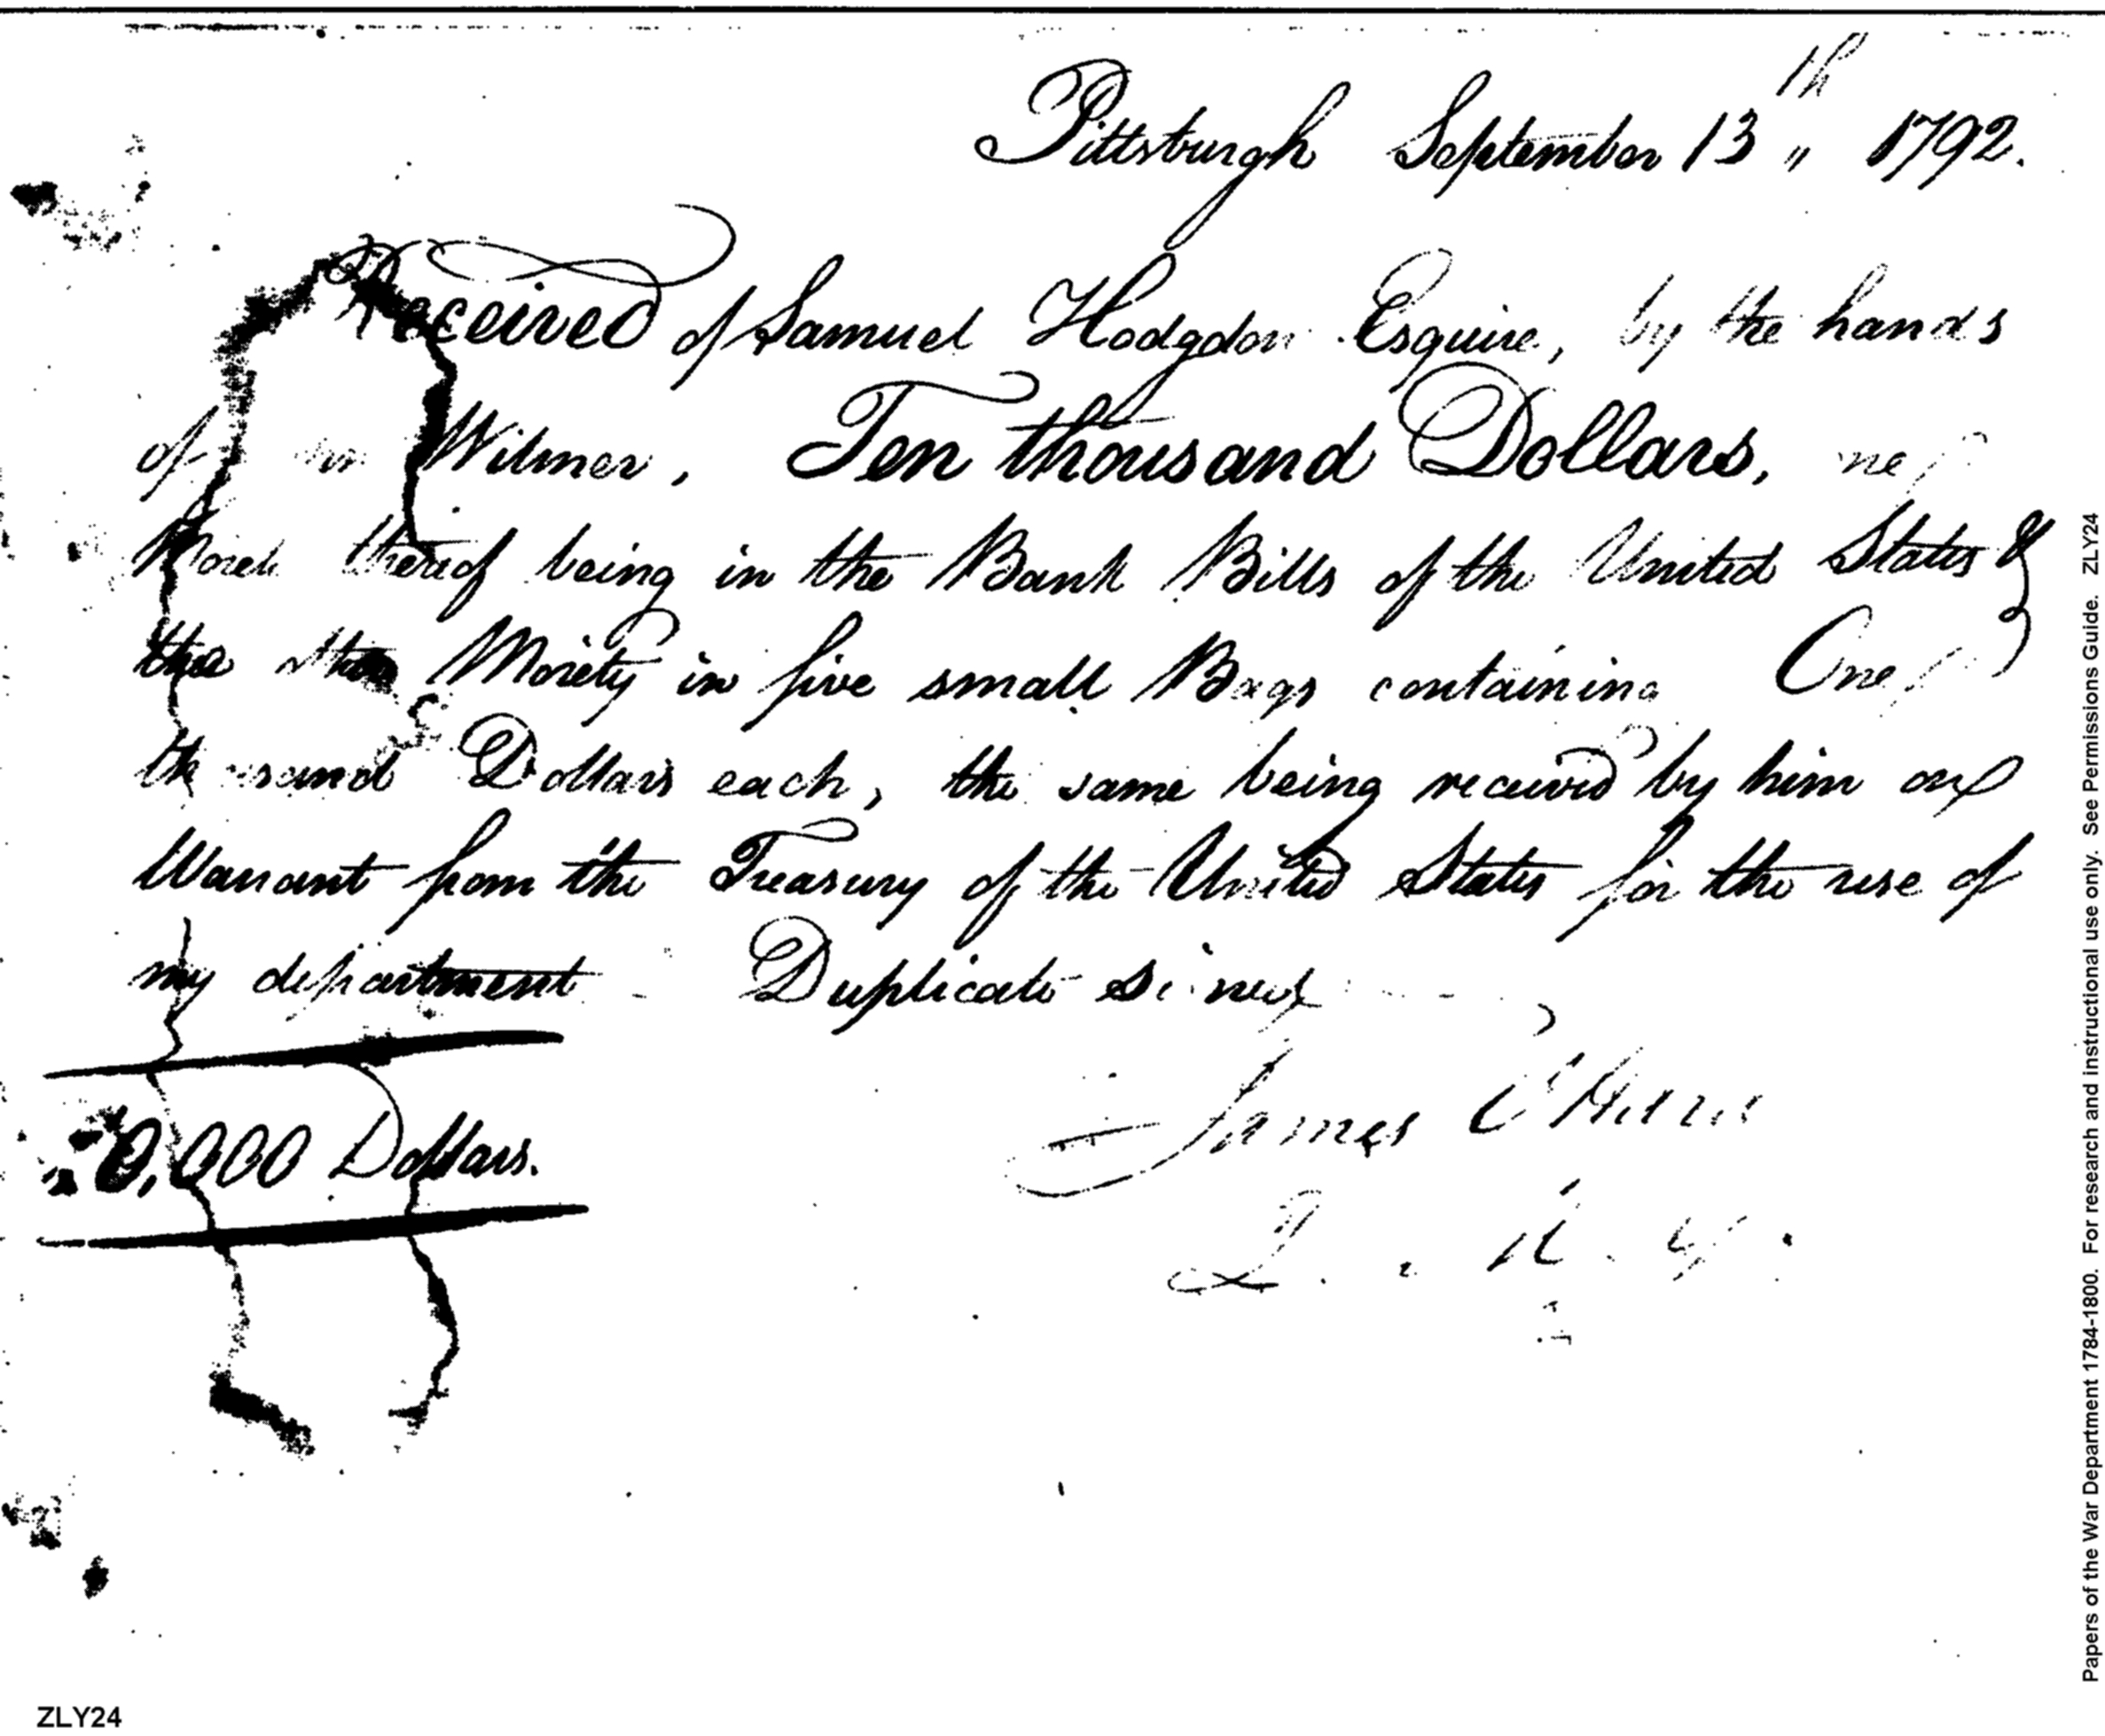 Pittsburgh September 13th 1792.
Received of Samuel Hodgdon Esquire, by the hands
of Wilmer, Ten thousand Dollars,
Moiety thereof being in the Bank Bills of the United States &
the other Moiety in five small Bags containing One
thousand Dollars each, the same being received by him on
Warrant from the Treasury of the United States for the use of
my department - Duplicate signed
James O'Hara
10,000 Dollars.
Q. M. G.
Papers of the War Department 1784-1800. For research and instructional use only. See Permissions Guide. ZLY24
ZLY24